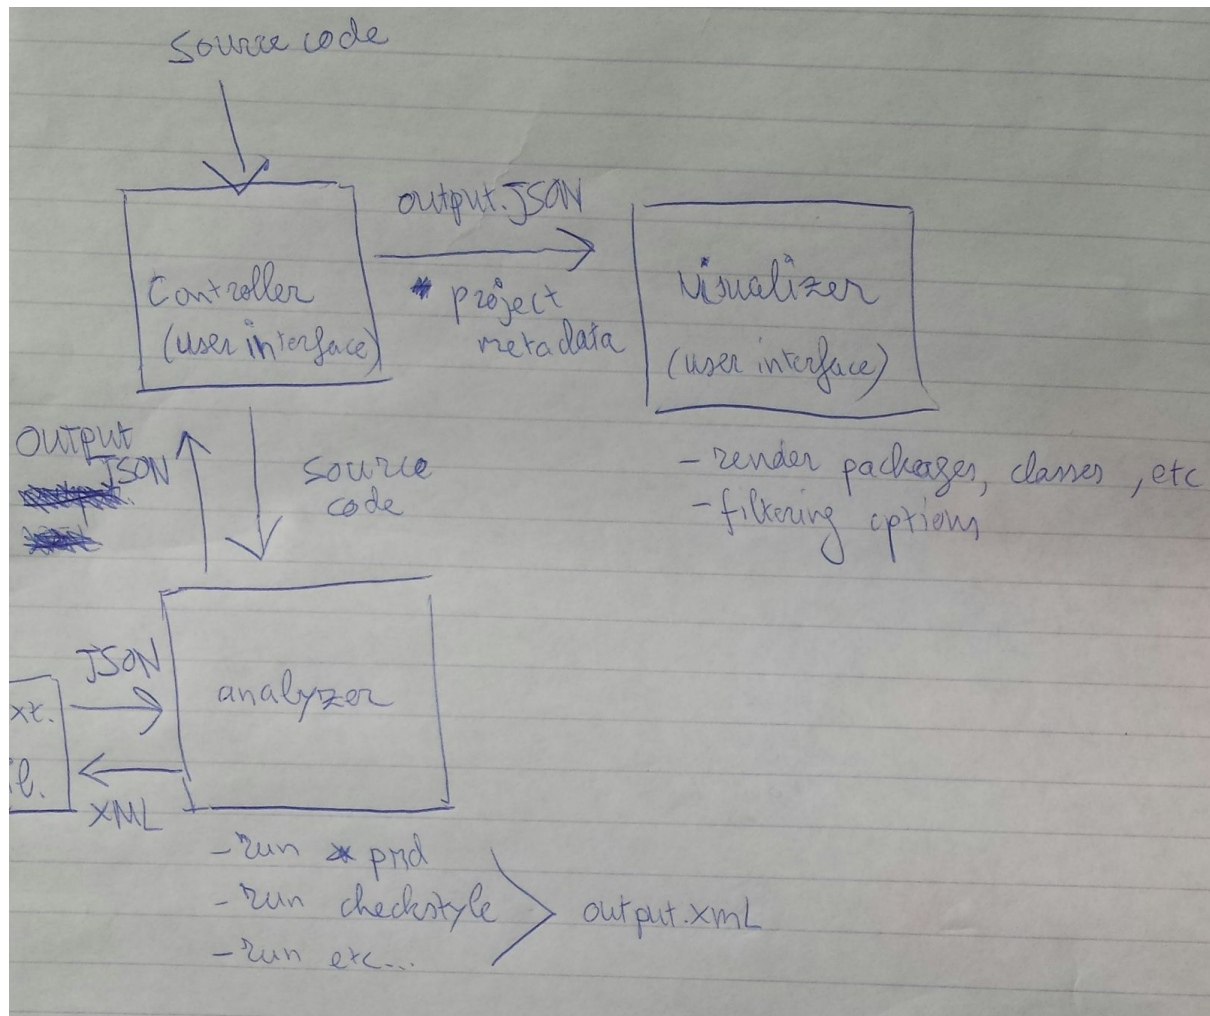 source code
output.JSON
Controller
(user interface)
project
metadata
visualizer
(user interface)
OUTPUT
JSON
source
code
- render packages, classes, etc
- filtering options
JSON
analyzer
xt.
XML
- run pmd
- run checkstyle
- run etc...
output.xmL